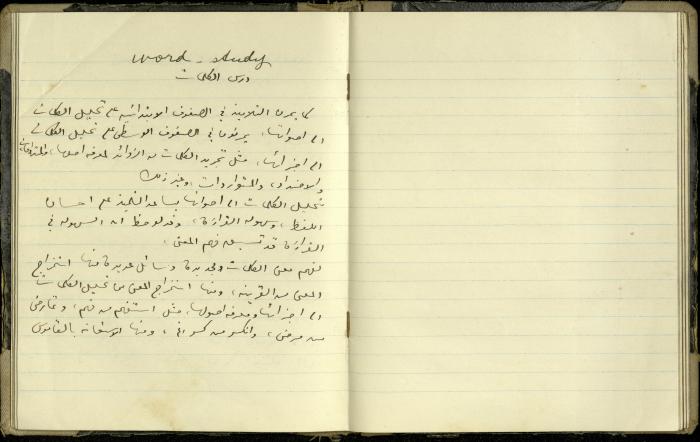 word-study
درس الكلمات
كما يمرن التلاميذ في الصفوف الابتدائية على تحليل الكلمات
الى اصواتها، يمرنون في الصفوف الوسطى على تحليل الكلمات
الى اجزائها، مثل تجريد الكلمات من الزوائد لمعرفة اصلها،
والاضداد، والمتواردات وغير ذلك
تحليل الكلمات الى اصواتها يساعد التلميذ على احسان
اللفظ، وسهولة القراءة، وقد لوحظ ان السهولة في
القراءة قد تسبق فهم المعنى.
لفهم معنى الكلمات الجديدة وسائل عديدة منها استخراج
المعنى من القرينة، ومنها استخراج المعنى من تحليل الكلمات
الى اجزائها ومعرفة اصولها، مثل استفهم من فهم، وتمارض
من مرض، وانكسر من كسر، ومنها الاستعانة بالقاموس